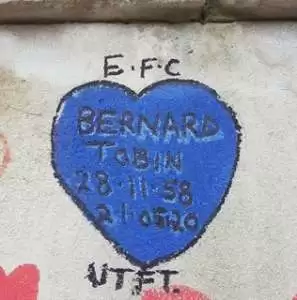 E.F.C
BERNARD
TOBIN
28.11.58
21.0520
UTFT.